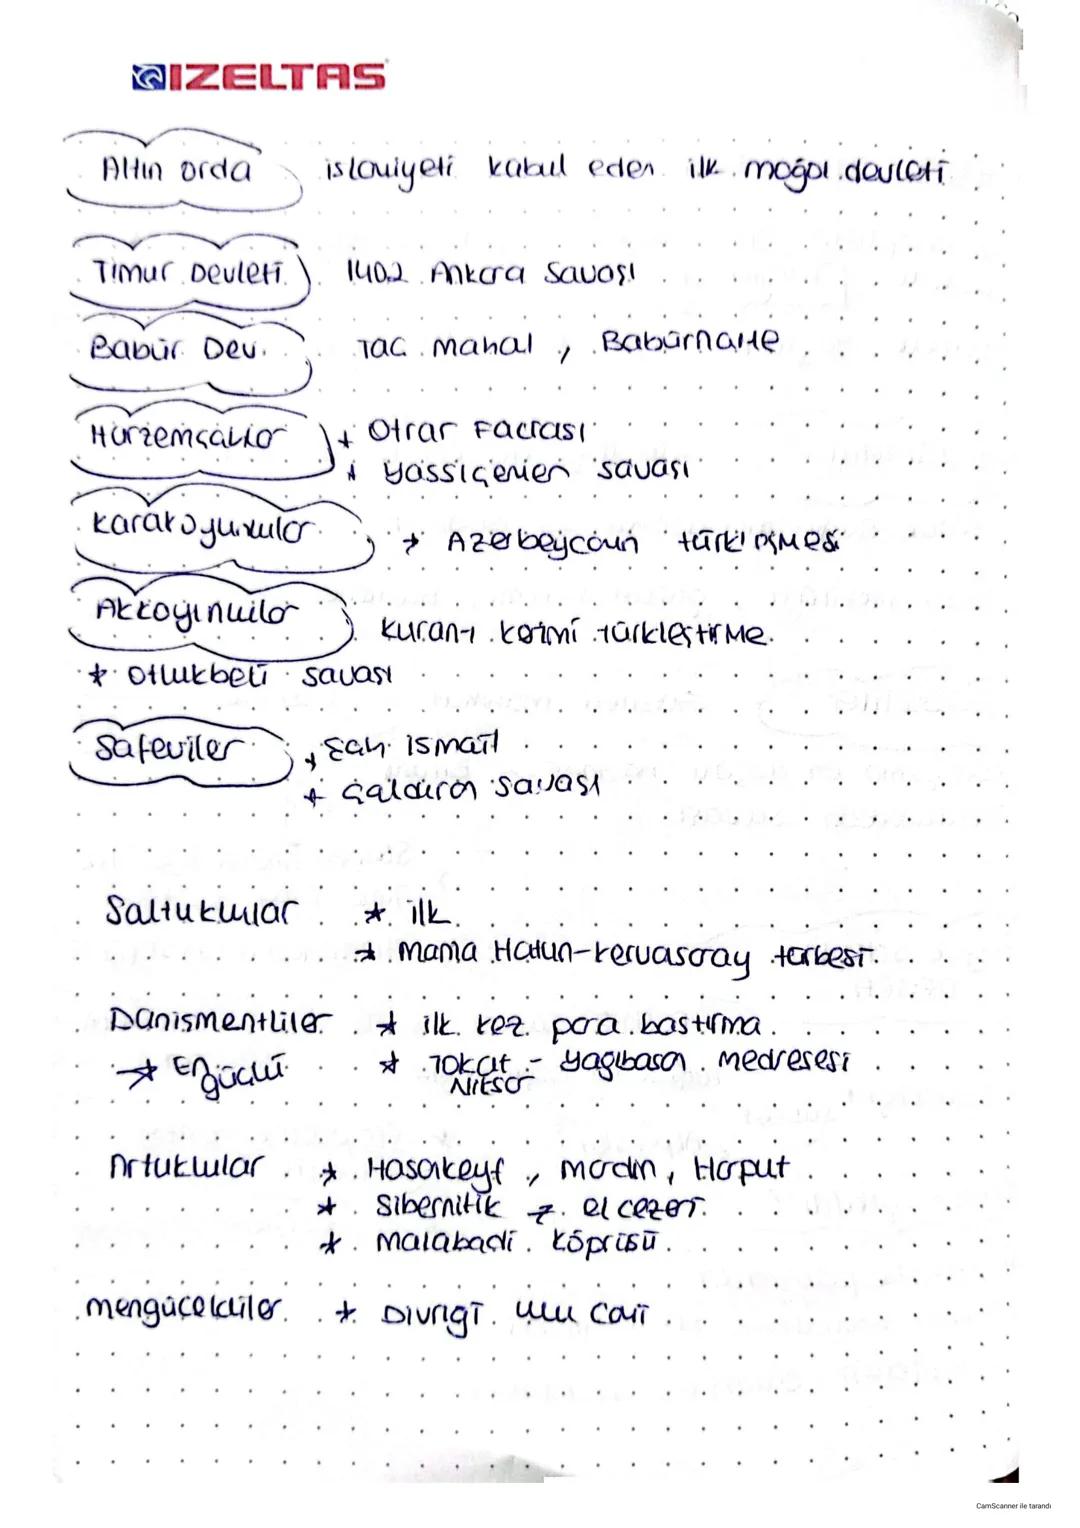 IZELTAS
Altın orda islamiyeti kabul eden ilk moğol devleti
Timur Devleti 1402 Ankara Savaşı
Babür Dev. Tac mahal , Babürname
Harzemşahlar + Otrar Faciası
* yassıçemen savaşı
Karakoyunlular → Azerbeycanın türkleşmesi
Akkoyunlular Kuran-ı kerimi türkleştirme.
* Otlukbeli savaşı
Safeviler + Şah ismail
+ Çaldıran savaşı
Saltuklular * ilk
* Mama Hatun-kervasaray türbesi
Danismentliler * ilk kez para bastırma
→* En güçlü * Tokat - yağıbasan medresesi
Niksar
Artuklular * Hasankeyf , mardin , Harput
* Sibernitik → el cezeri
* Malabadi Köprüsü
mengücekliler * Divriği ulu Cami
CamScanner ile tarandı